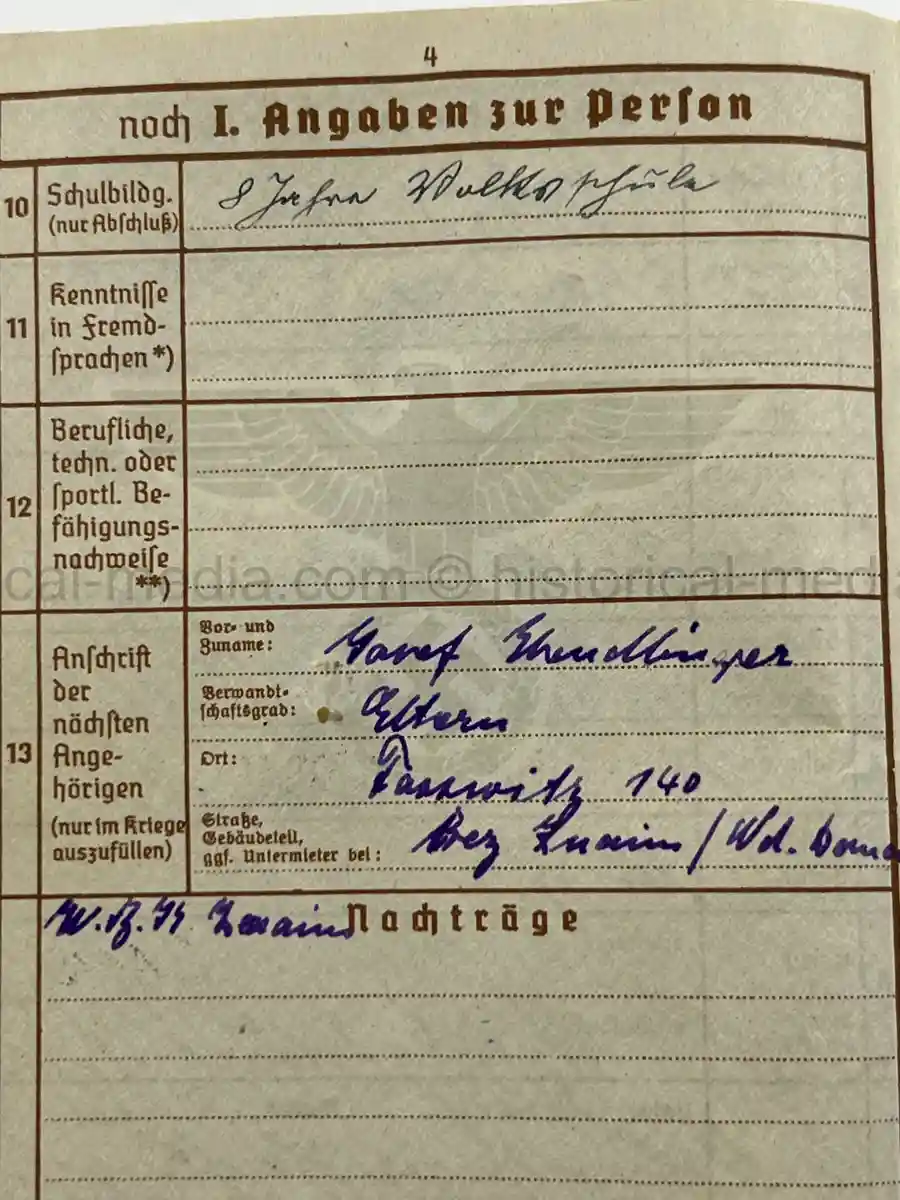 4
noch I. Angaben zur Person
10 Schulbildg. (nur Abschluß)
8 Jahre Volksschule
11 Kenntnisse in Fremd-
sprachen *)
12 Berufliche,
techn. oder
sportl. Be-
fähigungs-
nachweise
**)
cal-media.com © historical-med
13 Anschrift
der
nächsten
Ange-
hörigen
(nur im Kriege
auszufüllen)
Vor- und
Zuname: Josef
Verwandt-
schaftsgrad: Eltern
Ort: Tasswitz 140
Straße,
Gebäudeteil,
ggf. Untermieter bei: Bez Znaim / Nd. Dona
Znaim
Nachträge